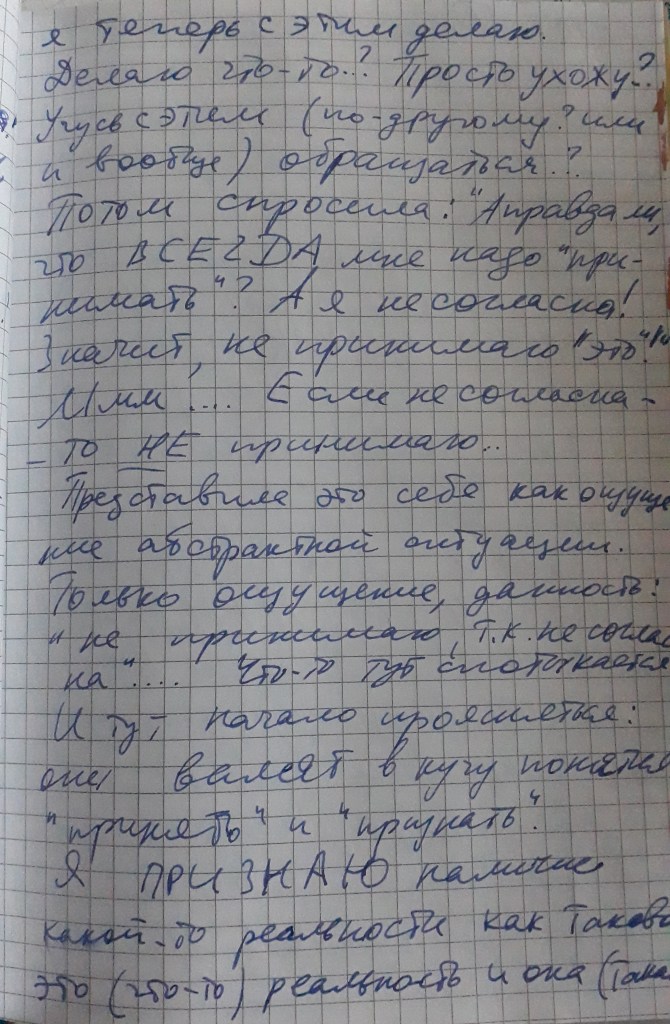 я теперь с этим делаю.
Делаю что-то..? Просто ухожу?..
Учусь с этим (по-другому? или
и вообще) обращаться..?
Потом спросила: "А правда ли,
что ВСЕГДА мне надо "при-
нимать"? А я не согласна!
Значит, не принимаю "это"!"
Ммм .... Если не согласна -
- то НЕ принимаю..
Представила это себе как ощуще
ние абстрактной ситуации.
Только ощущение, данность:
"не принимаю, т.к. не соглас
на".... Что-то тут спотыкается
И тут начало проясняться:
они валят в кучу понятия
"принять" и "признать".
Я ПРИЗНАЮ наличие
какой-то реальности как таково
это (что-то) реальность и она (така